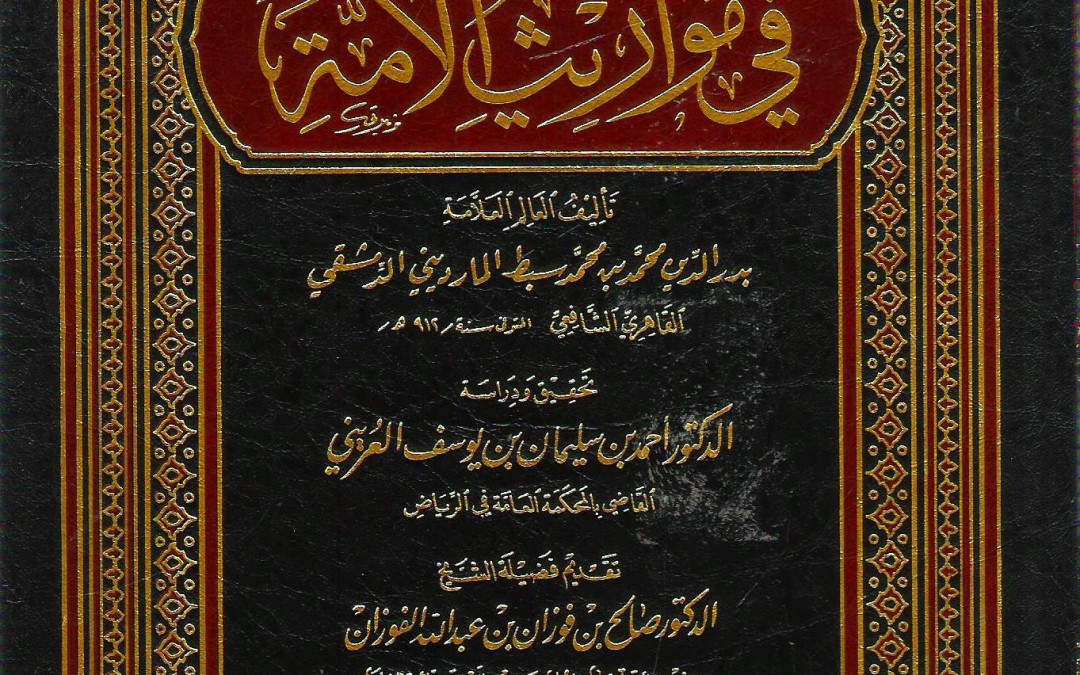 في مواريث الأمة
تأليف العالم العلامة
بدر الدين محمد بن محمد سبط المارديني الدمشقي
القاهري الشافعي المتوفى سنة ٩١٢ هـ
تحقيق ودراسة
الدكتور أحمد بن سليمان بن يوسف العريني
القاضي بالمحكمة العامة في الرياض
تقديم فضيلة الشيخ
الدكتور صالح بن فوزان بن عبدالله الفوزان